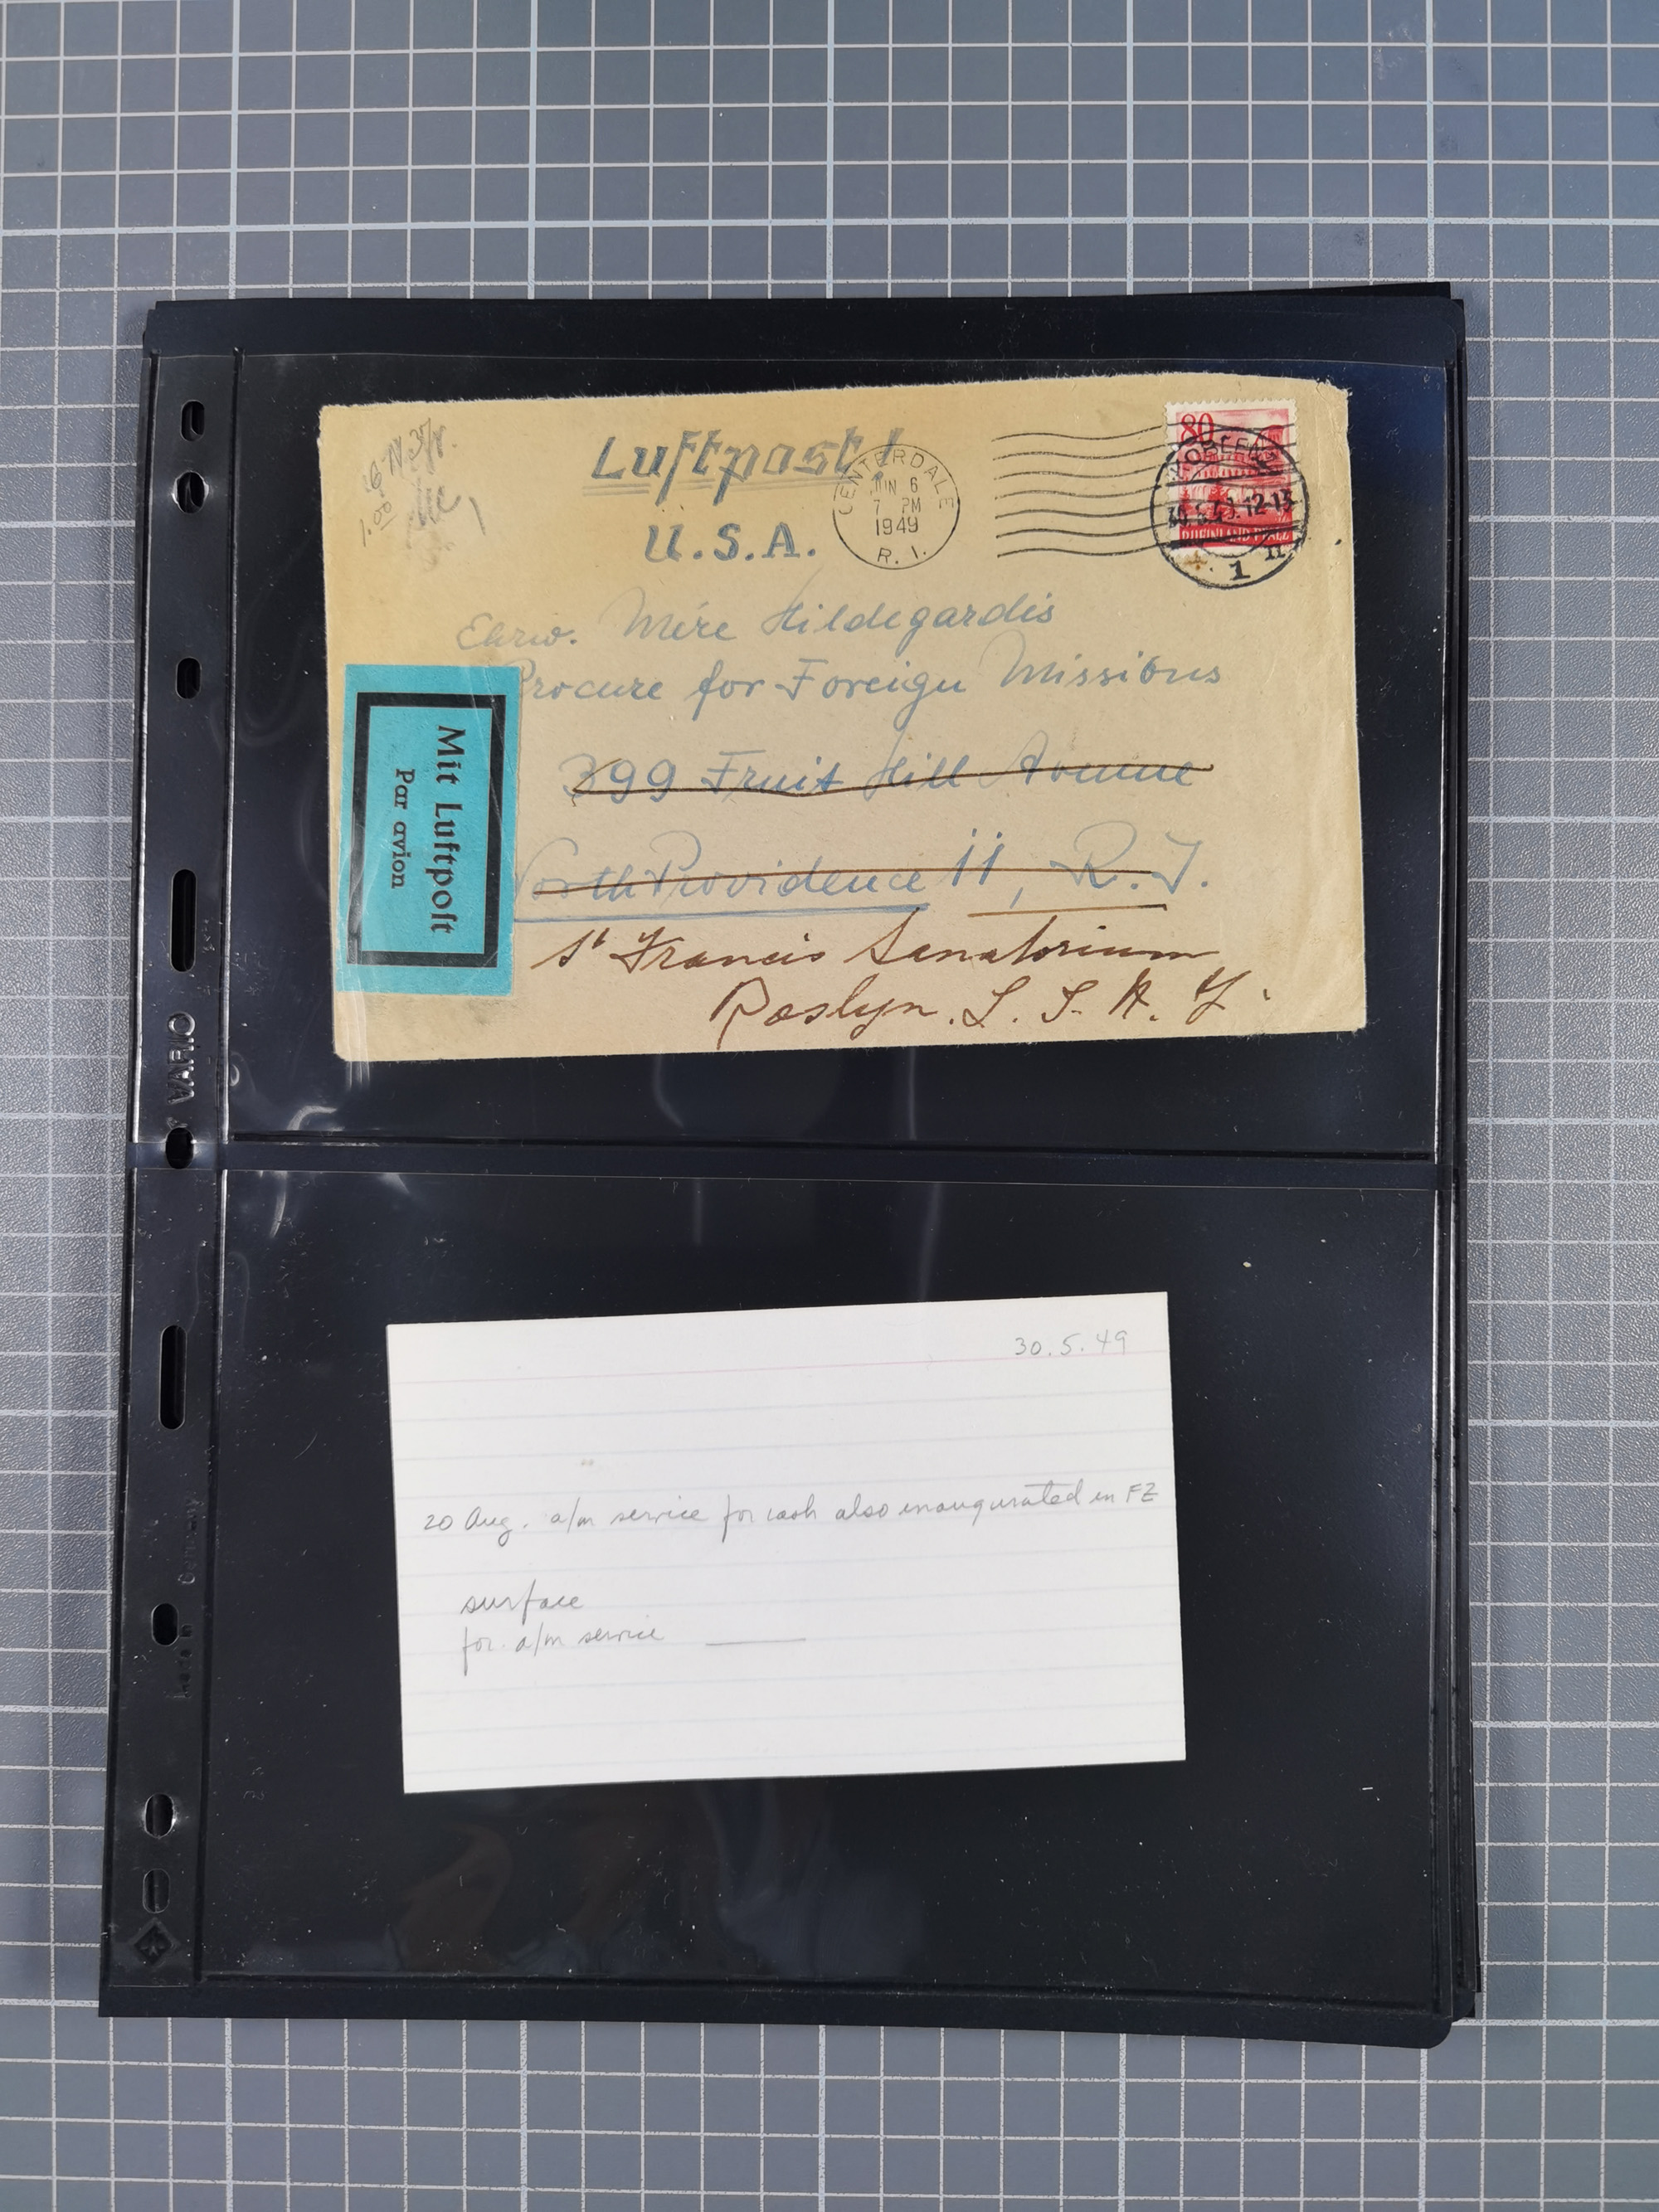 Luftpost!
U.S.A.
CENTERDALE
JUN 6
7 PM
1949
R. I.
80
KOBLENZ
12-13
RHEINLAND-PFALZ
1
1.00
Ehrw. Mère Hildegardis
Procure for Foreign Missions
399 Fruit Hill Avenue
North Providence 11, R.I.
St Francis Sanatorium
Roslyn. L. I. N. Y.
Mit Luftpoſt
Par avion
VARIO
30.5.49
20 Aug. a/m service for cash also inaugurated in FZ
surface
for a/m service
Made in Germany